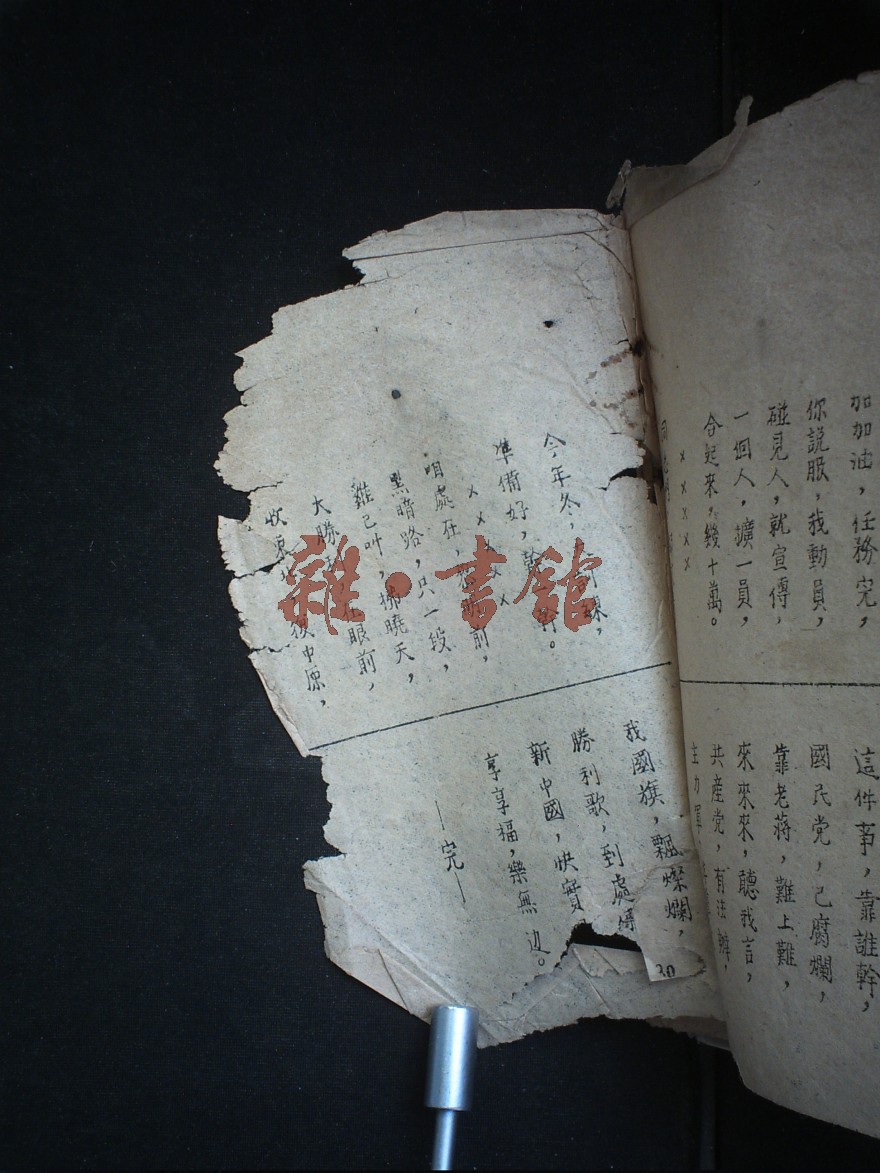 加加油，任務完，
你說服，我動員，
碰見人，就宣傳，
一個人，擴一員，
合起來，幾十萬。
×××××
這件事，靠誰幹，
國民党，已腐爛，
靠老蔣，難上難，
來來來，聽我言，
共產党，有法辦，
主力軍
今年冬，練，
準備好，幹。
×××××
咱處在，前，
黑暗路，只一段，
雞已叫，拂曉天，
大勝眼前，
收東中原，
我國旗，飄燦爛，
勝利歌，到處
新中國，快實
享享福，樂無边。
—完—
30
雜·書館